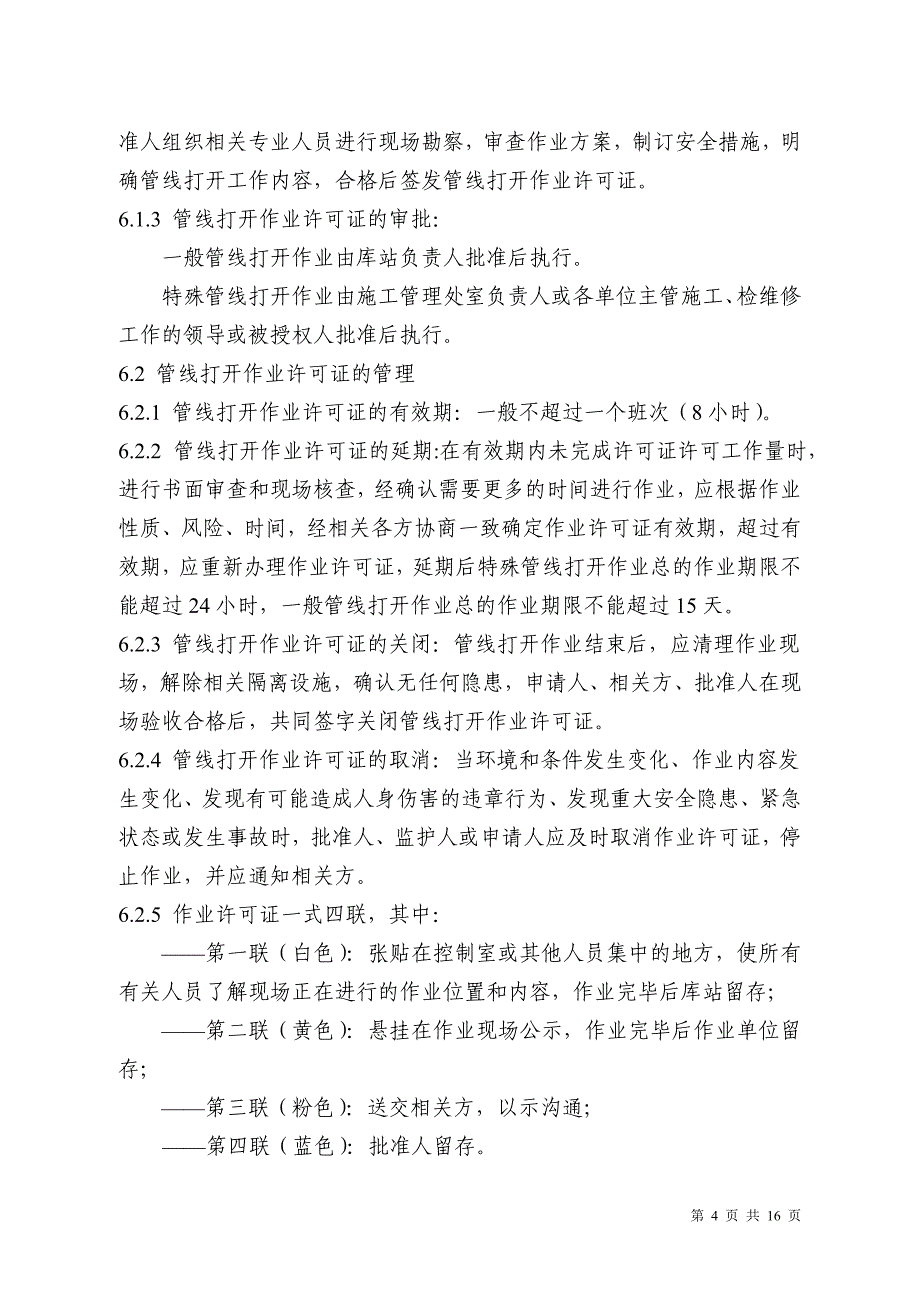 准人组织相关专业人员进行现场勘察，审查作业方案，制订安全措施，明
确管线打开工作内容，合格后签发管线打开作业许可证。
6.1.3 管线打开作业许可证的审批：
一般管线打开作业由库站负责人批准后执行。
特殊管线打开作业由施工管理处室负责人或各单位主管施工、检维修
工作的领导或被授权人批准后执行。
6.2 管线打开作业许可证的管理
6.2.1 管线打开作业许可证的有效期：一般不超过一个班次（8 小时）。
6.2.2 管线打开作业许可证的延期：在有效期内未完成许可证许可工作量时，
进行书面审查和现场核查，经确认需要更多的时间进行作业，应根据作业
性质、风险、时间，经相关各方协商一致确定作业许可证有效期，超过有
效期，应重新办理作业许可证，延期后特殊管线打开作业总的作业期限不
能超过 24 小时，一般管线打开作业总的作业期限不能超过 15 天。
6.2.3 管线打开作业许可证的关闭：管线打开作业结束后，应清理作业现
场，解除相关隔离设施，确认无任何隐患，申请人、相关方、批准人在现
场验收合格后，共同签字关闭管线打开作业许可证。
6.2.4 管线打开作业许可证的取消：当环境和条件发生变化、作业内容发
生变化、发现有可能造成人身伤害的违章行为、发现重大安全隐患、紧急
状态或发生事故时，批准人、监护人或申请人应及时取消作业许可证，停
止作业，并应通知相关方。
6.2.5 作业许可证一式四联，其中：
——第一联（白色）：张贴在控制室或其他人员集中的地方，使所有
有关人员了解现场正在进行的作业位置和内容，作业完毕后库站留存；
——第二联（黄色）：悬挂在作业现场公示，作业完毕后作业单位留
存；
——第三联（粉色）：送交相关方，以示沟通；
——第四联（蓝色）：批准人留存。
第 4 页 共 16 页